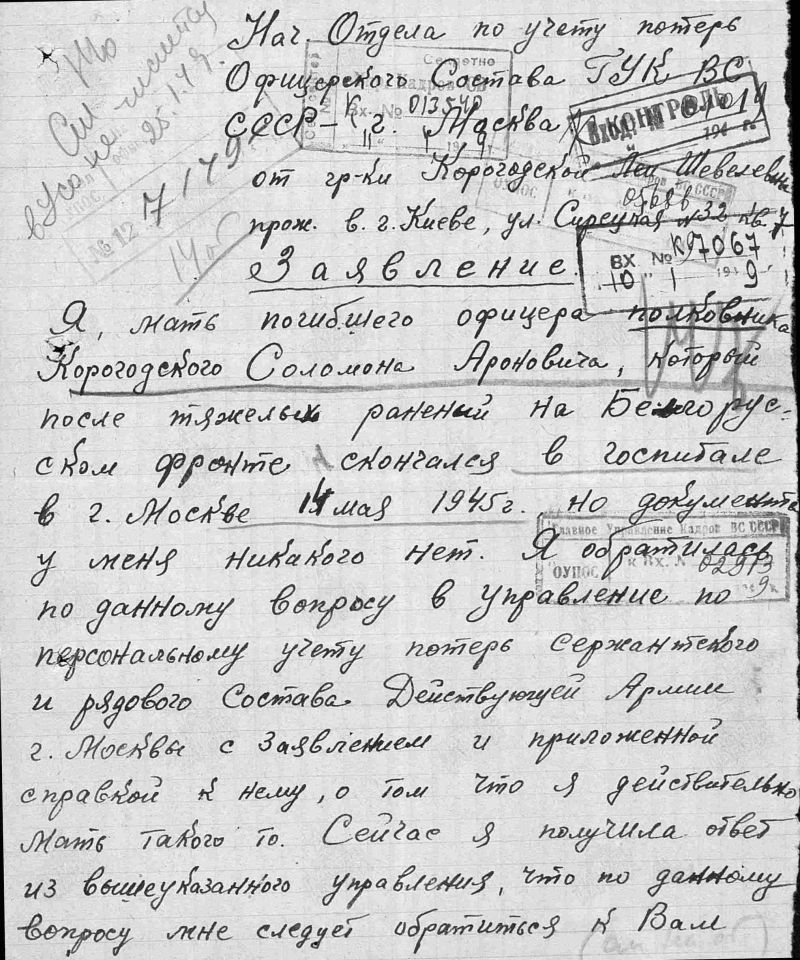 Нач. Отдела по учету потерь
Офицерского Состава ГУК ВС
СССР – г. Москва
от гр-ки Корогодской Леи Шевелевны
прож. в. г. Киеве, ул. Сирецкая №32 кв. 7
Заявление.
Я, мать погибшего офицера полковника
Корогодского Соломона Ароновича, который
после тяжелых ранений на Белорус-
ском фронте скончался в госпитале
в г. Москве 14 мая 1945 г., но документа
у меня никакого нет. Я обратилась
по данному вопросу в управление по
персональному учету потерь сержантского
и рядового Состава Действующей Армии
г. Москвы с Заявлением и приложенной
справкой к нему, о том что я действительно
Мать такого то. Сейчас я получила ответ
из вышеуказанного управления, что по данному
вопросу мне следует обратиться к Вам
Секретно
Вх. № 013540
КОНТРОЛЬ
ВХ № К97067
10 1 194 9
Главное Управление Кадров ВС СССР
ОУПОС к Вх. № 02913
9
25.1.49
№ 12